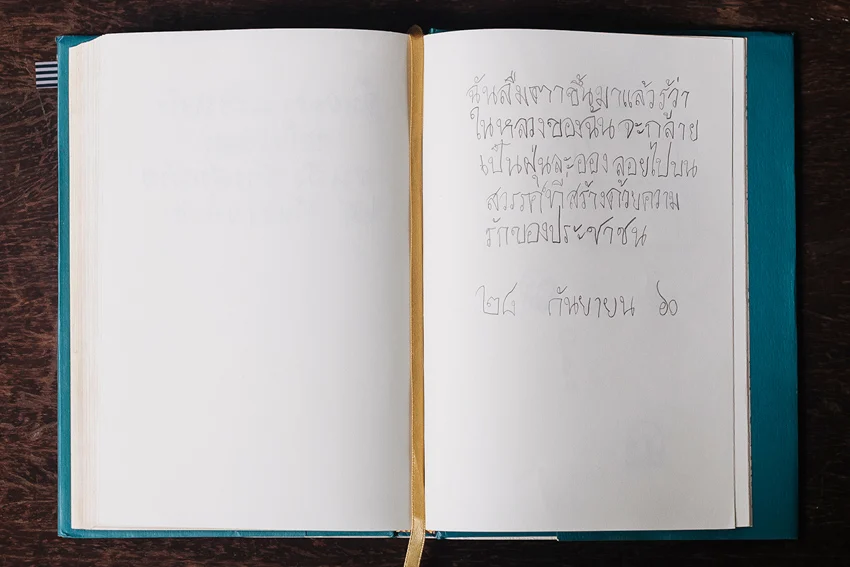 ฉันลืมตาขึ้นมาแล้วรู้ว่า
ในหลวงของฉัน จะกลาย
เป็นฝุ่นละออง ลอยไปบน
สวรรค์ที่สร้างด้วยความ
รักของประชาชน
๒๘ กันยายน ๖๐